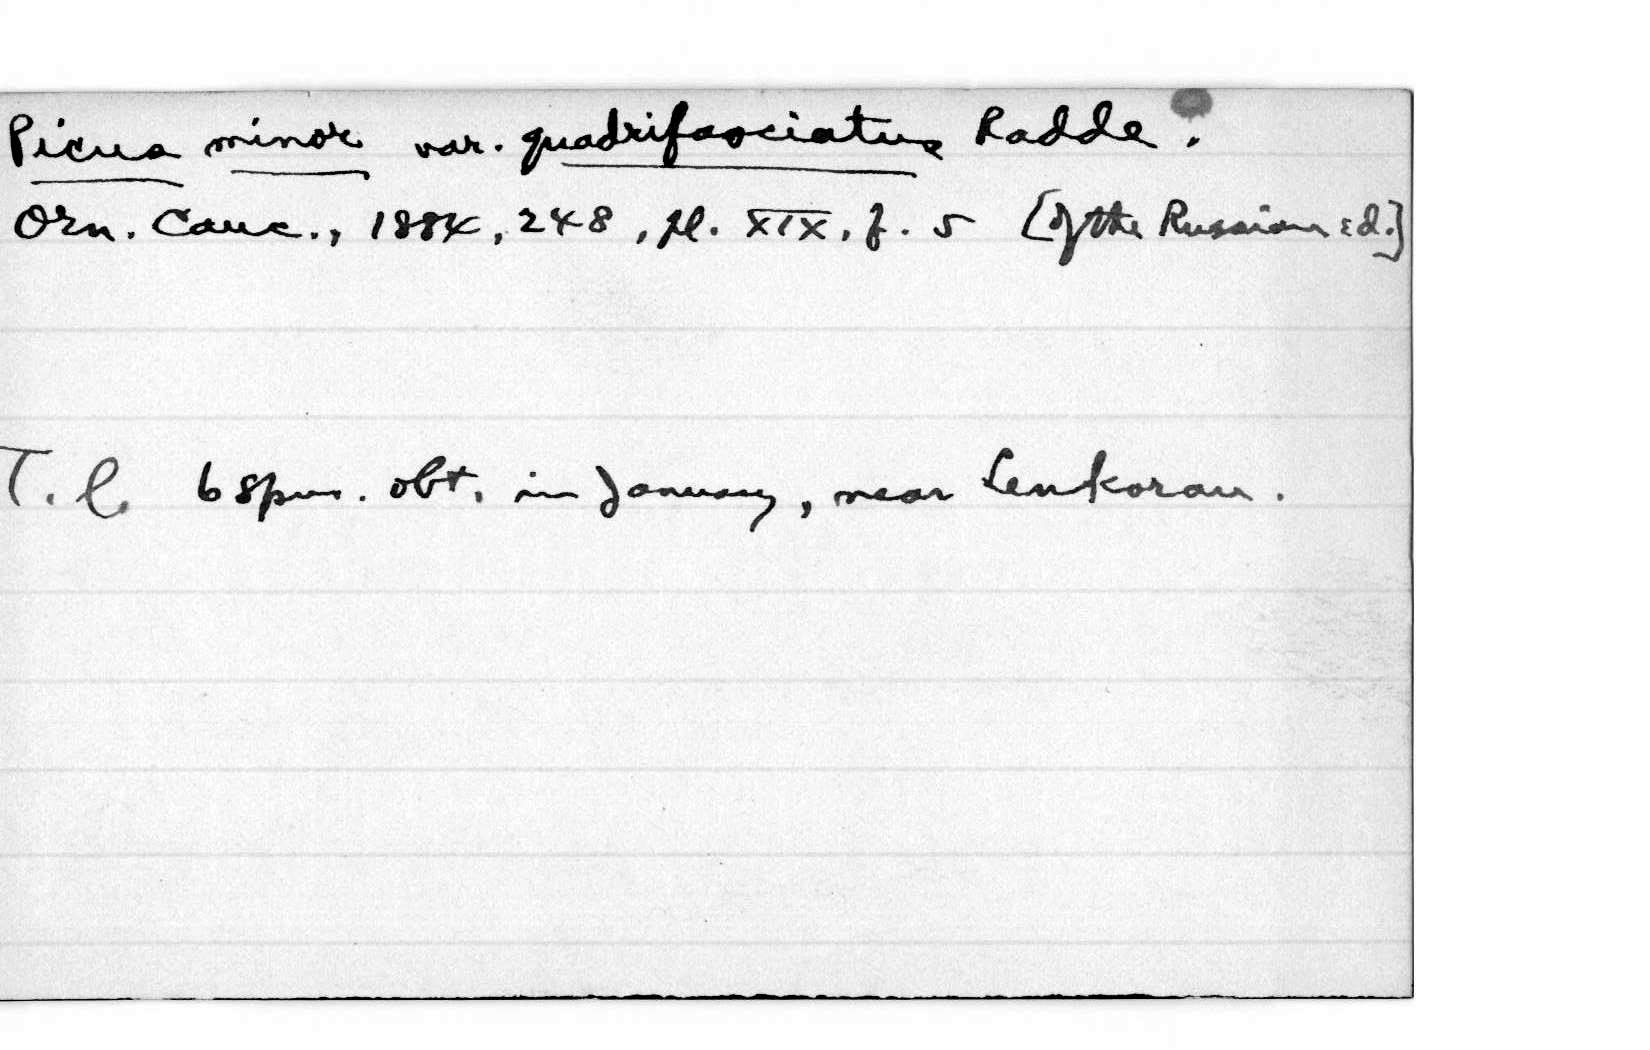 Picus minor var. quadrifasciatus Radde.
Orn. Cauc., 1884, 248, pl. XIX, f. 5 [of the Russian ed.]
T. l. 6 spms. obt. in January, near Lenkoran.